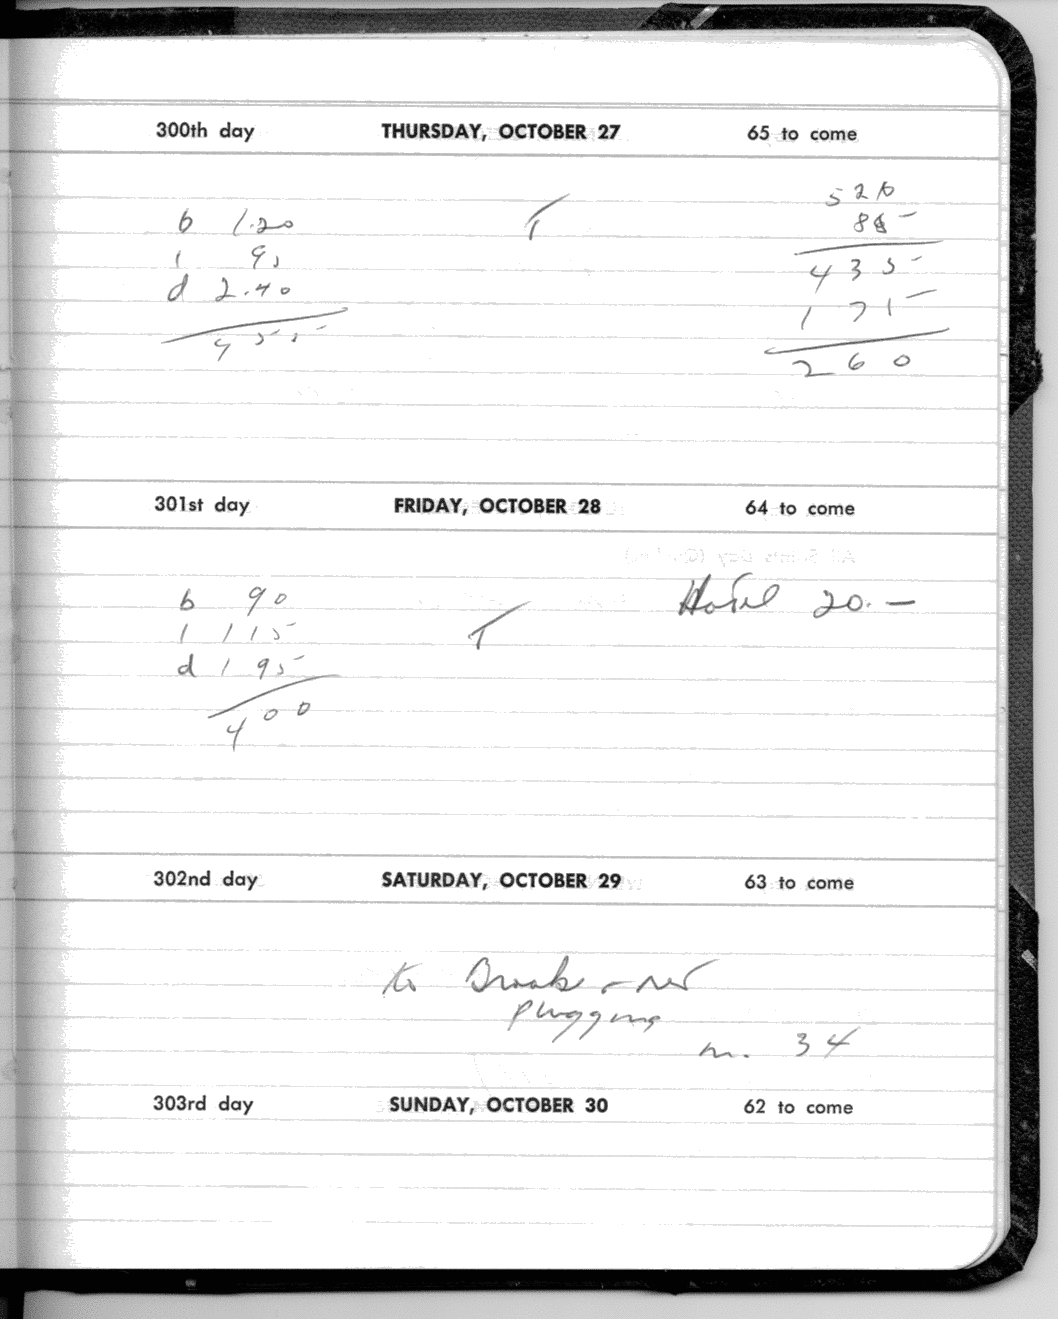 300th day THURSDAY, OCTOBER 27 65 to come
b 1.20
l 95
d 2.40
4 55
T
520
85
435
175
260
301st day FRIDAY, OCTOBER 28 64 to come
b 90
l 1 15
d 1 95
4 00
T
Hotel 20.—
302nd day SATURDAY, OCTOBER 29 63 to come
to
plugging
m. 34
303rd day SUNDAY, OCTOBER 30 62 to come